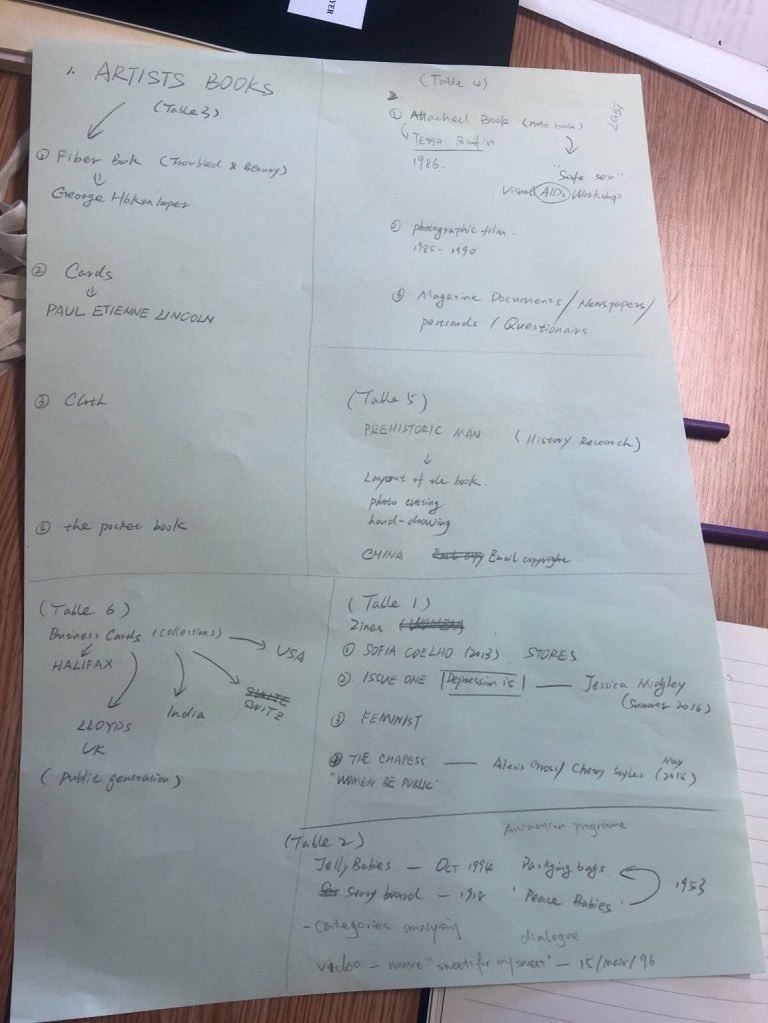 VER
1. ARTISTS BOOKS
(Table 3)
① Fiber Book (Troubled & Beauty)
George
② Cards
PAUL ETIENNE LINCOLN
③ Cloth
⑤ the pocket book
(Table 4)
2.
① Attached Book (note book)
Tessa
1986.
"Safe sex"
Visual AIDs Workshop
② photographic film.
1985 - 1990
③ Magazine Documents / Newspapers /
postcards / Questionairs
(Table 5)
PREHISTORIC MAN (History Research)
Layout of the book.
photo cutting
hand-drawing
CHINA Email copyright
(Table 6)
Business Cards (collections) USA
HALIFAX
LLOYDS
UK
India
(public generation)
(Table 1)
Zines
① SOFIA COELHO (2013) STORES
② ISSUE ONE Depression is — Jessica Midgley
(Summer 2016)
③ FEMINIST
THE CHAPESS — Alexis Gross / Cherry Styles (May
"WOMEN BE PUBLIC"
(Table 2)
Animation programe
Jelly Babies — OCT 1994 Packging bags
Story board — 1918 'Peace Babies' 1953
- categories analysis
dialogue
video — "sweets for my sweet" — 15/mar/96